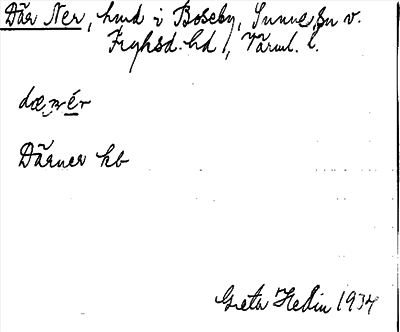 Där Ner, hmd i Boseby, Sunne sn v.
Fryksd. hd, Värml. l.
dæ nér
Därner kb
Greta Hedin 1934